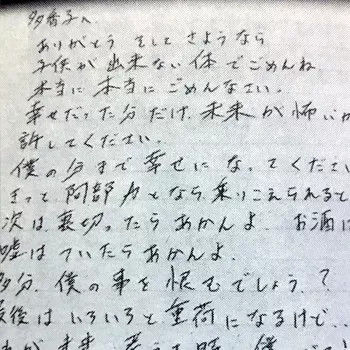 多香子へ
ありがとう そして さようなら
子供が出来ない体でごめんね
本当に本当にごめんなさい。
幸せだった分だけ、未来が怖いか
許してください。
僕の分まで幸せになってくださ
きっと阿部力となら乗りこえられると
次は、裏切ったらあかんよ。お酒に
嘘はついたらあかんよ。
多分、僕の事を恨むでしょう?
最後はいろいろと重荷になるけど‥
未来 考え 時 僕